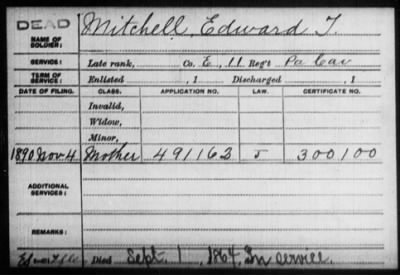 DEAD
NAME OF SOLDIER: Mitchell, Edward T.
SERVICE: Late rank, Co. E, 11 Reg't Pa Cav
TERM OF SERVICE: Enlisted , 1 Discharged , 1
DATE OF FILING. CLASS. APPLICATION NO. LAW. CERTIFICATE NO.
Invalid,
Widow,
Minor,
1890 Nov 4 Mother 491162 J 300100
ADDITIONAL SERVICES:
REMARKS:
Died Sept. 1, 1864, In service.